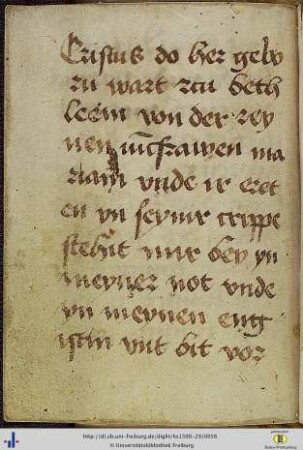 Cristus do her gebo
rn wart czu beth
leem von der rey
nen iucfrawen ma
riam vnde ir eret
en yn seynir crippe
stehit mir bey yn
meyner not vnde
yn meynen eng
istin vnt bit vor
http://dl.ub.uni-freiburg.de/diglit/hs1500-29/0056
© Universitätsbibliothek Freiburg